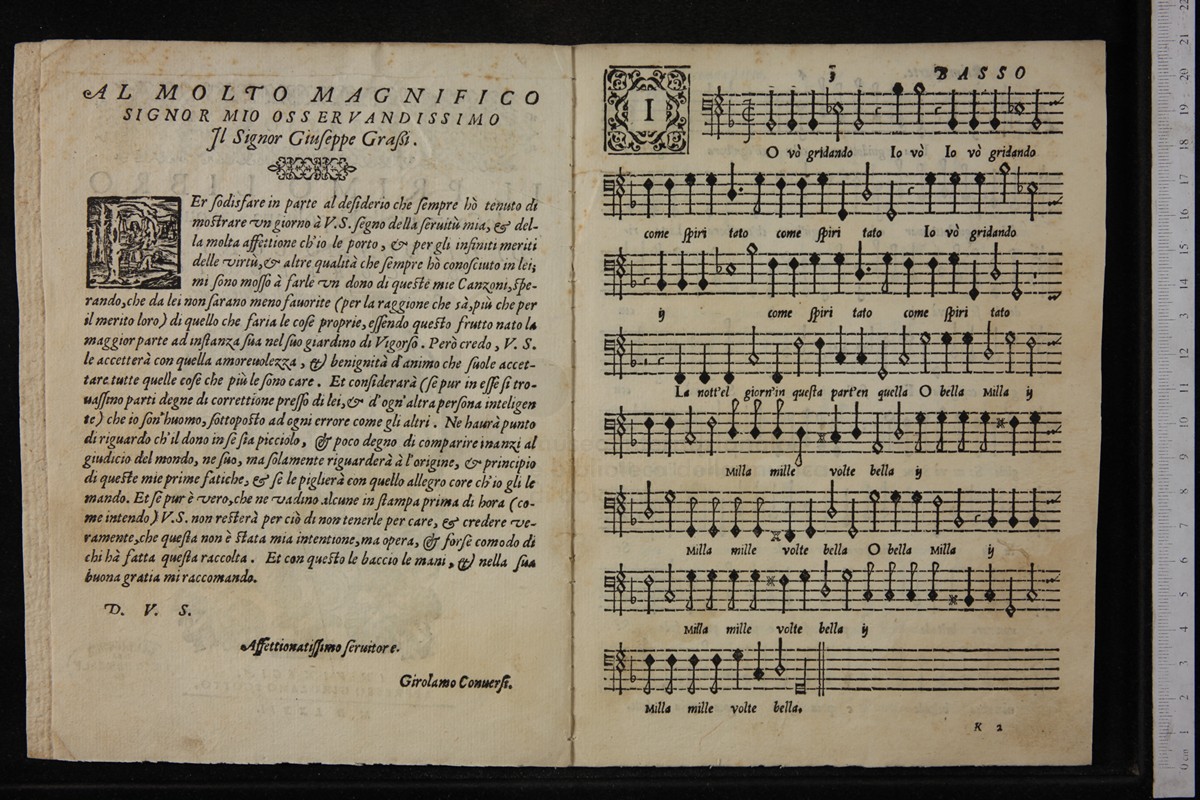 AL MOLTO MAGNIFICO
SIGNOR MIO OSSERVANDISSIMO
Il Signor Giuseppe Grassi.
PEr sodisfare in parte al desiderio che sempre hò tenuto di
mostrare vn giorno à V.S. segno della seruitù mia, & del-
la molta affettione ch'io le porto, & per gli infiniti meriti
delle virtù, & altre qualità che sempre hò conosciuto in lei;
mi sono mosso à farle vn dono di queste mie Canzoni, spe-
rando, che da lei non sarano meno fauorite (per la raggione che sà, più che per
il merito loro) di quello che faria le cose proprie, essendo questo frutto nato la
maggior parte ad instanza sua nel suo giardino di Vigorso. Però credo, V. S.
le accetterà con quella amoreuolezza, & benignità d'animo che suole accet-
tare tutte quelle cose che più le sono care. Et considerarà (se pur in esse si tro-
uassino parti degne di correttione presso di lei, & d'ogn'altra persona inteligen
te) che io son'huomo, sottoposto ad ogni errore come gli altri. Ne haurà punto
di riguardo ch'il dono in se sia picciolo, & poco degno di comparire inanzi al
giudicio del mondo, ne suo, ma solamente riguarderà à l'origine, & principio
di queste mie prime fatiche, & se le piglierà con quello allegro core ch'io gli le
mando. Et se pur è vero, che ne vadino alcune in stampa prima di hora (co-
me intendo) V.S. non resterà per ciò di non tenerle per care, & credere ve-
ramente, che questa non è stata mia intentione, ma opera, & forse comodo di
chi hà fatta questa raccolta. Et con questo le baccio le mani, & nella sua
buona gratia mi raccomando.
D. V. S.
Affettionatissimo seruitore.
Girolamo Conuersi.
3 BASSO
I
O vò gridando Io vò Io vò gridando
come spiri tato come spiri tato Io vò gridando
ij come spiri tato come spiri tato
La nott'el giorn'in questa part'en quella O bella Milla ij
Milla mille volte bella ij
Milla mille volte bella O bella Milla ij
Milla mille volte bella ij
Milla mille volte bella.
K 2